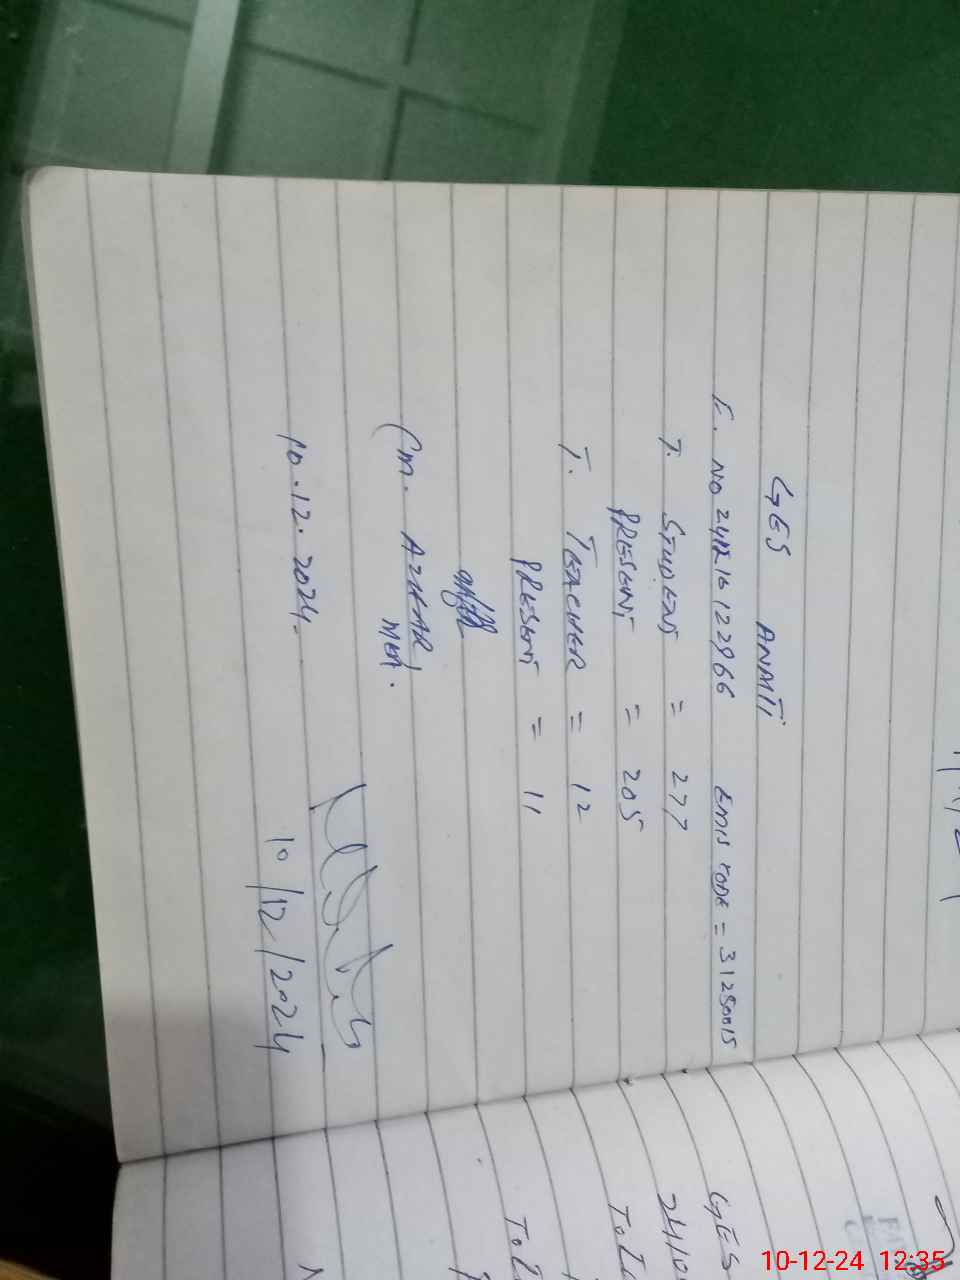 GES ANMTI
F. NO 241216122966 EMIS CODE = 31250015
T. STUDENT = 277
PRESENT = 205
T. TEACHER = 12
PRESENT = 11
(M. AZHAR
MEA.
10.12.2024.
10/12/2024
GES
10-12-24 12:35